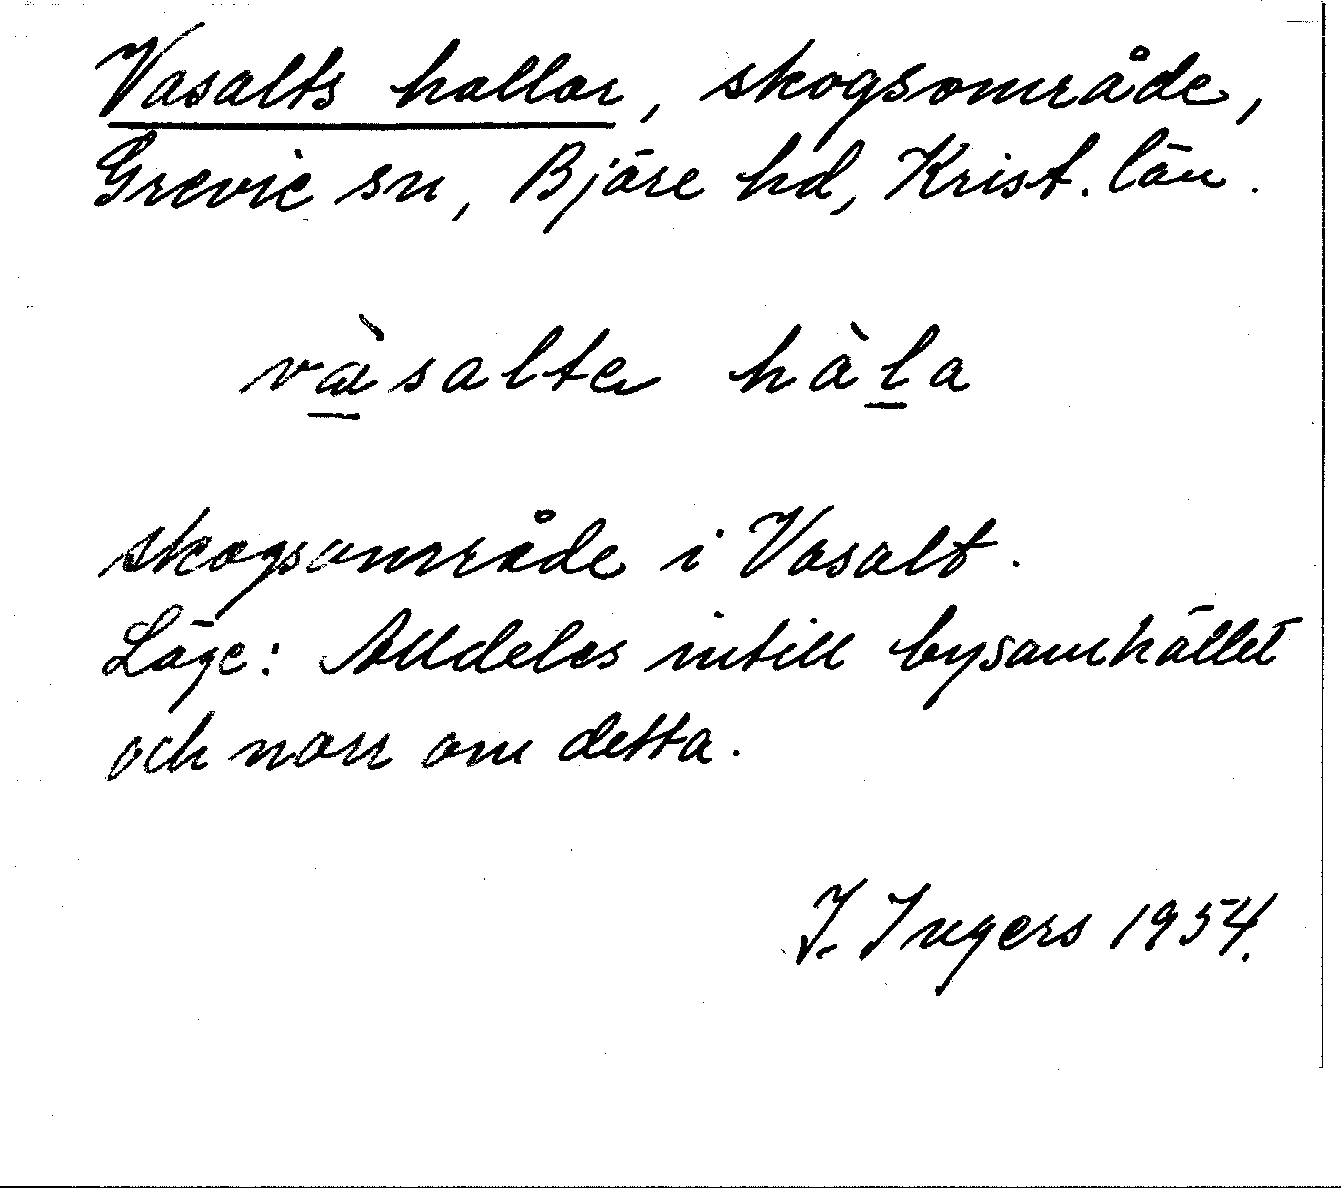 Vasalts hallar, skogsområde,
Grevie sn, Bjäre hd, Krist. län.
væ̀salta hàla
skogsområde i Vasalt.
Läge: Alldeles intill bysamhället
och norr om detta.
I. Ingers 1954.